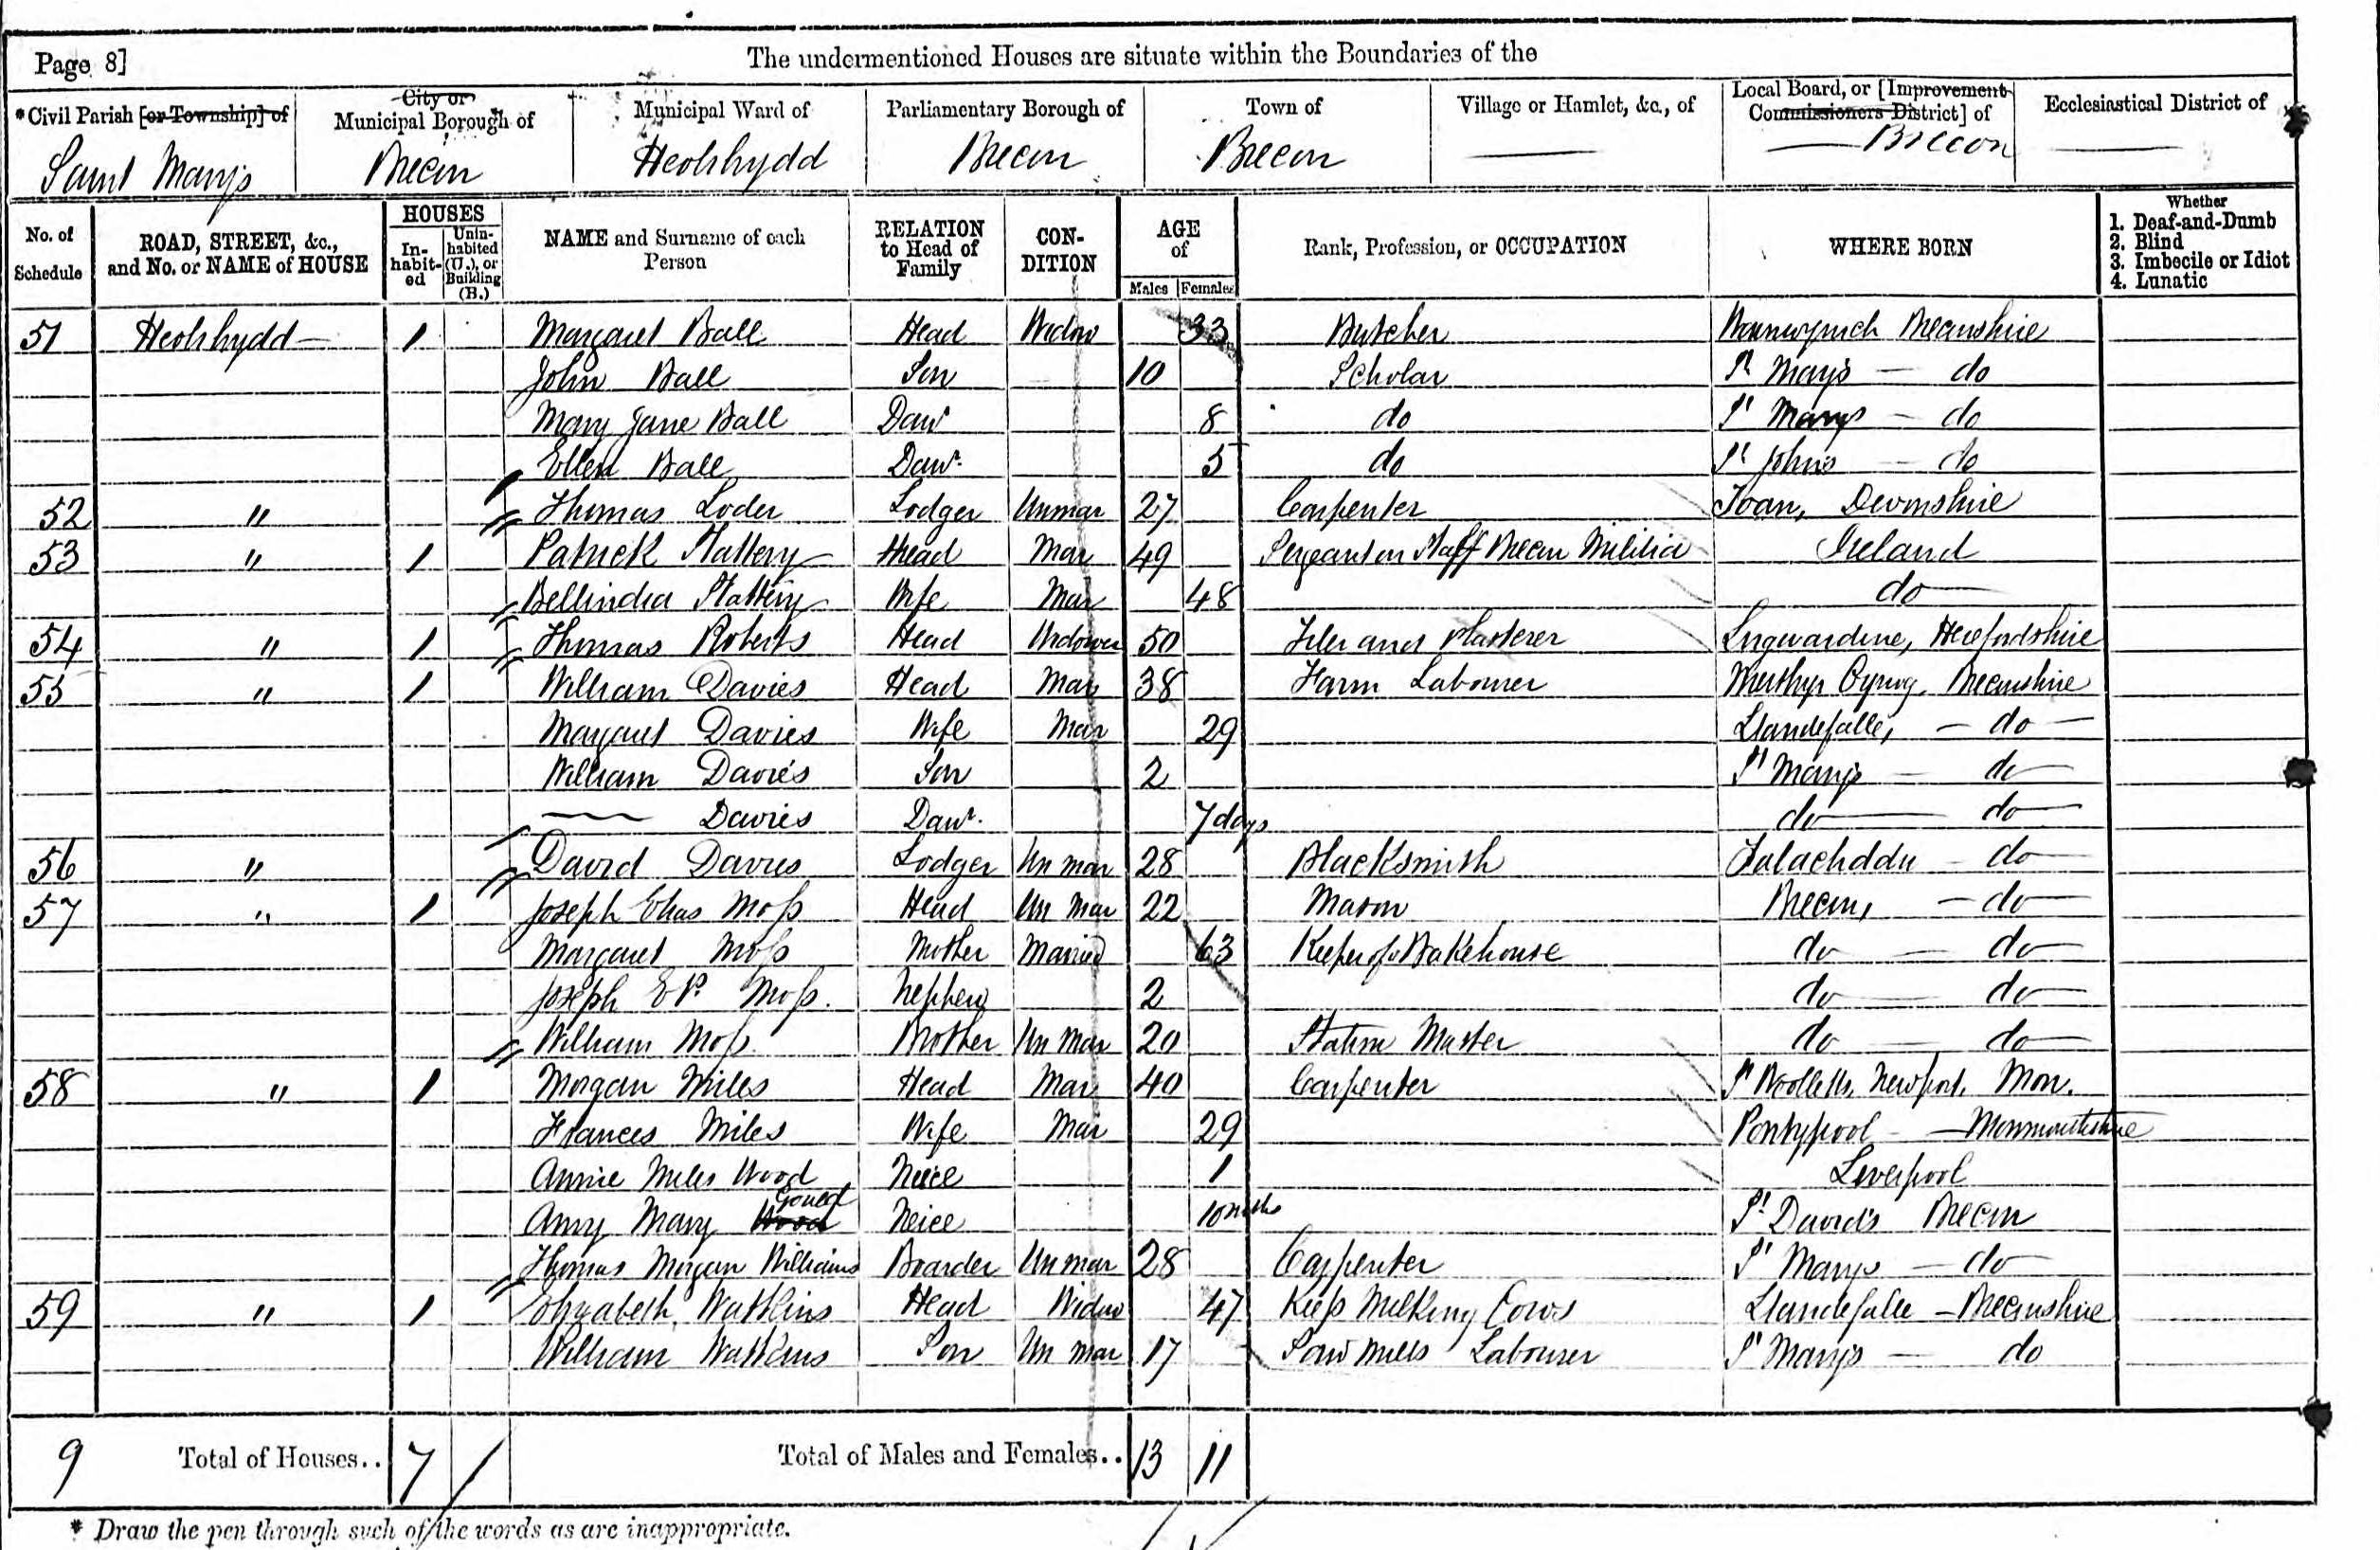 Page 8] The undermentioned Houses are situate within the Boundaries of the
*Civil Parish [or Township] of
City or Municipal Borough of
Municipal Ward of
Parliamentary Borough of
Town of
Village or Hamlet, &c., of
Local Board, or [Improvement Commissioners District] of
Ecclesiastical District of
Saint Mary's Brecon Heolrhydd Brecon Brecon — Brecon —
No. of Schedule
ROAD, STREET, &c., and No. or NAME of HOUSE
HOUSES
Inhabited
Uninhabited (U.), or Building (B.)
NAME and Surname of each Person
RELATION to Head of Family
CONDITION
AGE of
Males Females
Rank, Profession, or OCCUPATION
WHERE BORN
Whether
1. Deaf-and-Dumb
2. Blind
3. Imbecile or Idiot
4. Lunatic
51 Heolrhydd — 1 Margaret Ball Head Widow 33 Butcher Breconshire
John Ball Son 10 Scholar St Mary's — do
Mary Jane Ball Daur 8 do St Marys — do
Ellen Ball Daur. 5 do St Johns — do
52 " Thomas Loder Lodger Unmar 27 Carpenter Devonshire
53 " 1 Patrick Slattery Head Mar 49 Sergeant on Staff Brecon Militia Ireland
Bellindia Slattery Wife Mar 48 do
54 " 1 Thomas Roberts Head Widower 50 Tiler and Plasterer Lugwardine, Herefordshire
55 " 1 William Davies Head Mar 38 Farm Labourer Merthyr Cynog, Breconshire
Margaret Davies Wife Mar 29 Llandefalle, — do —
William Davies Son 2 St Mary's — do
— Davies Daur. 7 days do — do
56 " David Davies Lodger Un mar 28 Blacksmith Talachddu — do
57 " 1 Joseph Chas Moss Head Un Mar 22 Mason Brecon, — do
Margaret Moss Mother Married 63 Keeper of Bakehouse do — do
Joseph E P. Moss. Nephew 2 do — do
William Moss. Brother Un Mar 20 Station Master do — do
58 " 1 Morgan Miles Head Mar 40 Carpenter St Woolletts, Newport, Mon.
Frances Miles Wife Mar 29 Pontypool — Monmouthshire
Annie Miles Wood Neice 1 Liverpool
Amy Mary Wood Gould Neice 10 mths St. David's Brecon
Thomas Morgan Williams Boarder Un mar 28 Carpenter St Marys — do
59 " 1 Elizabeth Watkins Head Widow 47 Keeps Milking Cows Llandefalle — Breconshire
William Watkins Son Un mar 17 Saw Mills Labourer St Mary's — do
9 Total of Houses.. 7 Total of Males and Females.. 13 11
* Draw the pen through such of the words as are inappropriate.